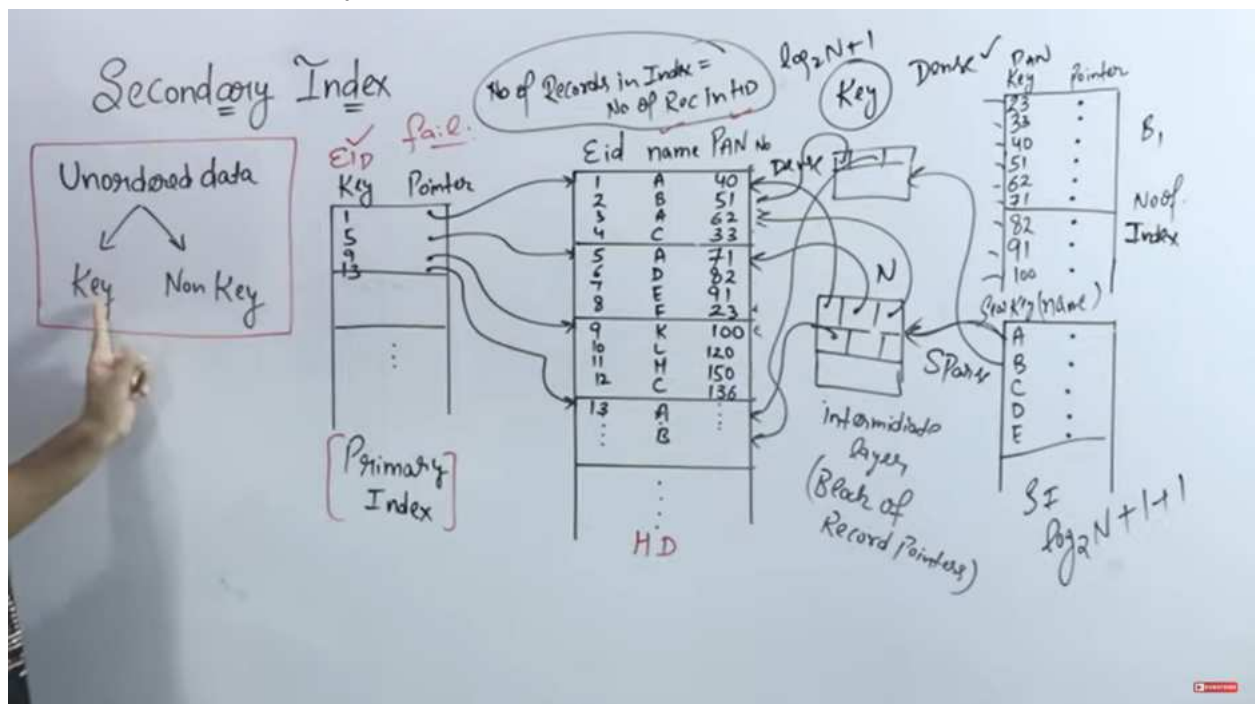 Secondary Index
Unordered data
Key Non Key
EID fail.
Key Pointer
1
5
9
13
[Primary
Index]
No of Records in Index =
No of Rec In HD
Eid name PAN No
1 A 40
2 B 51
3 A 62
4 C 33
5 A 71
6 D 82
7 E 91
8 F 23
9 K 100
10 L 120
11 M 150
12 C 136
13 A
B
HD
log₂N+1
Key
Dense
N
intermidiate
layer
(Block of
Record Pointers)
Dense ✓
PAN
Key Pointer
23
33
40
51
62
71
82
91
100
B₁
No of
Index
Key (name)
Sparse
A
B
C
D
E
SI
log₂N+1+1
SUBSCRIBE